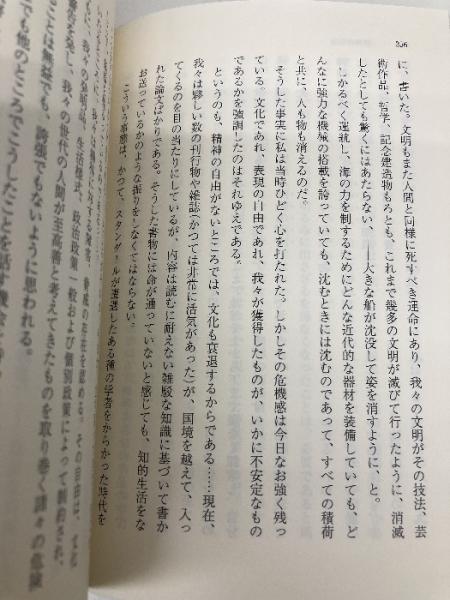 206
に、書いた。文明もまた人間と同様に死すべき運命にあり、我々の文明がその技法、芸
術作品、哲学、記念建造物もろとも、これまで幾多の文明が滅びて行ったように、消滅
したとしても驚くにはあたらない、——大きな船が沈没して姿を消すように、と。
しかるべく運航し、海の力を制するためにどんな近代的な器材を装備していても、ど
んなに強力な機械の搭載を誇っていても、沈むときには沈むのであって、すべての積荷
と共に、人も物も消えるのだ。
そうした事実に私は当時ひどく心を打たれた。しかしその危機感は今日なお強く残っ
ている。文化であれ、表現の自由であれ、我々が獲得したものが、いかに不安定なもの
であるかを強調したのはそれゆえである。
というのも、精神の自由がないところでは、文化も衰退するからである……現在、
我々は夥しい数の刊行物や雑誌(かつては非常に活気があった)が、国境を越えて、入っ
てくるのを目の当たりにしているが、内容は読むに耐えない雑駁な知識に基づいて書か
れた論文ばかりである。そうした書物には命が通っていないと感じても、知的生活をな
お送っているかのような振りをしなくてはならない。
こういう事態は、かつて、スタンダールが遭遇したある種の学者をからかった時代を
の存在を認める。その自由は、
生活様式、政治政策一般および個別政策によって制約され、
警告を発し、我々の
が至高善と考えてきたものを取り巻く諸々の危険
ことは無益でも、
もないように思われる。
でも他のところで
したことを